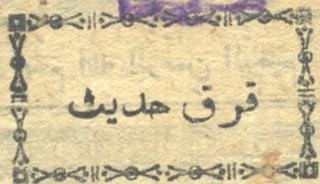 فرق حديث